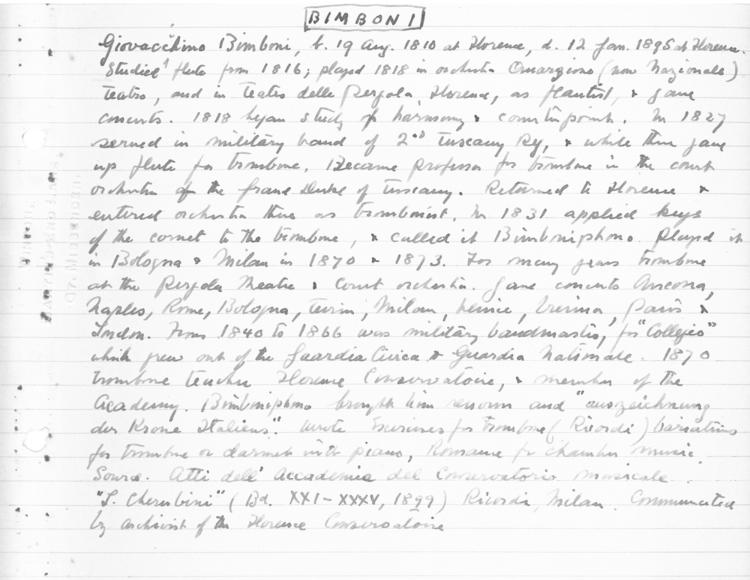 BIMBONI
Giovacchino Bimboni, b. 19 Aug. 1810 at Florence, d. 12 Jan. 1895 at Florence.
Studied flute from 1816; played 1818 in orchestra (now Nazionale)
Teatro, and in teatro della Pergola, Florence, as flautist, & gave
concerts. 1818 began study of harmony & counterpoint. In 1827
served in military band of 2nd Tuscany Rg, & while there gave
up flute for trombone. Became professor for trombone in the court
orchestra of the Grand Duke of Tuscany. Returned to Florence &
entered orchestra there as trombonist. In 1831 applied keys
of the cornet to the trombone, & called it Bimboniphono. Played it
in Bologna & Milan in 1870 & 1873. For many years trombone
at the Pergola Theatre & Court orchestra. Gave concerts Ancona,
Naples, Rome, Bologna, Turin, Milan, Venice, Paris &
London. From 1840 to 1866 was military bandmaster, for "Collegio"
which grew out of the Guardia Civica & Guardia Nationale. 1870
trombone teacher Florence Conservatoire, & member of the
Academy. Bimboniphono brought him renown and "auszeichnung
der Krone Italiens". Wrote Exercises for trombone (Ricordi) Variations
for trombone or clarinet with piano, Romance for chamber music.
Source. Atti dell' Accademia del Conservatorio musicale
"L. Cherubini" (Bd. XXI-XXXV, 1899) Ricordi, Milan. Communicated
by archivist of the Florence Conservatoire